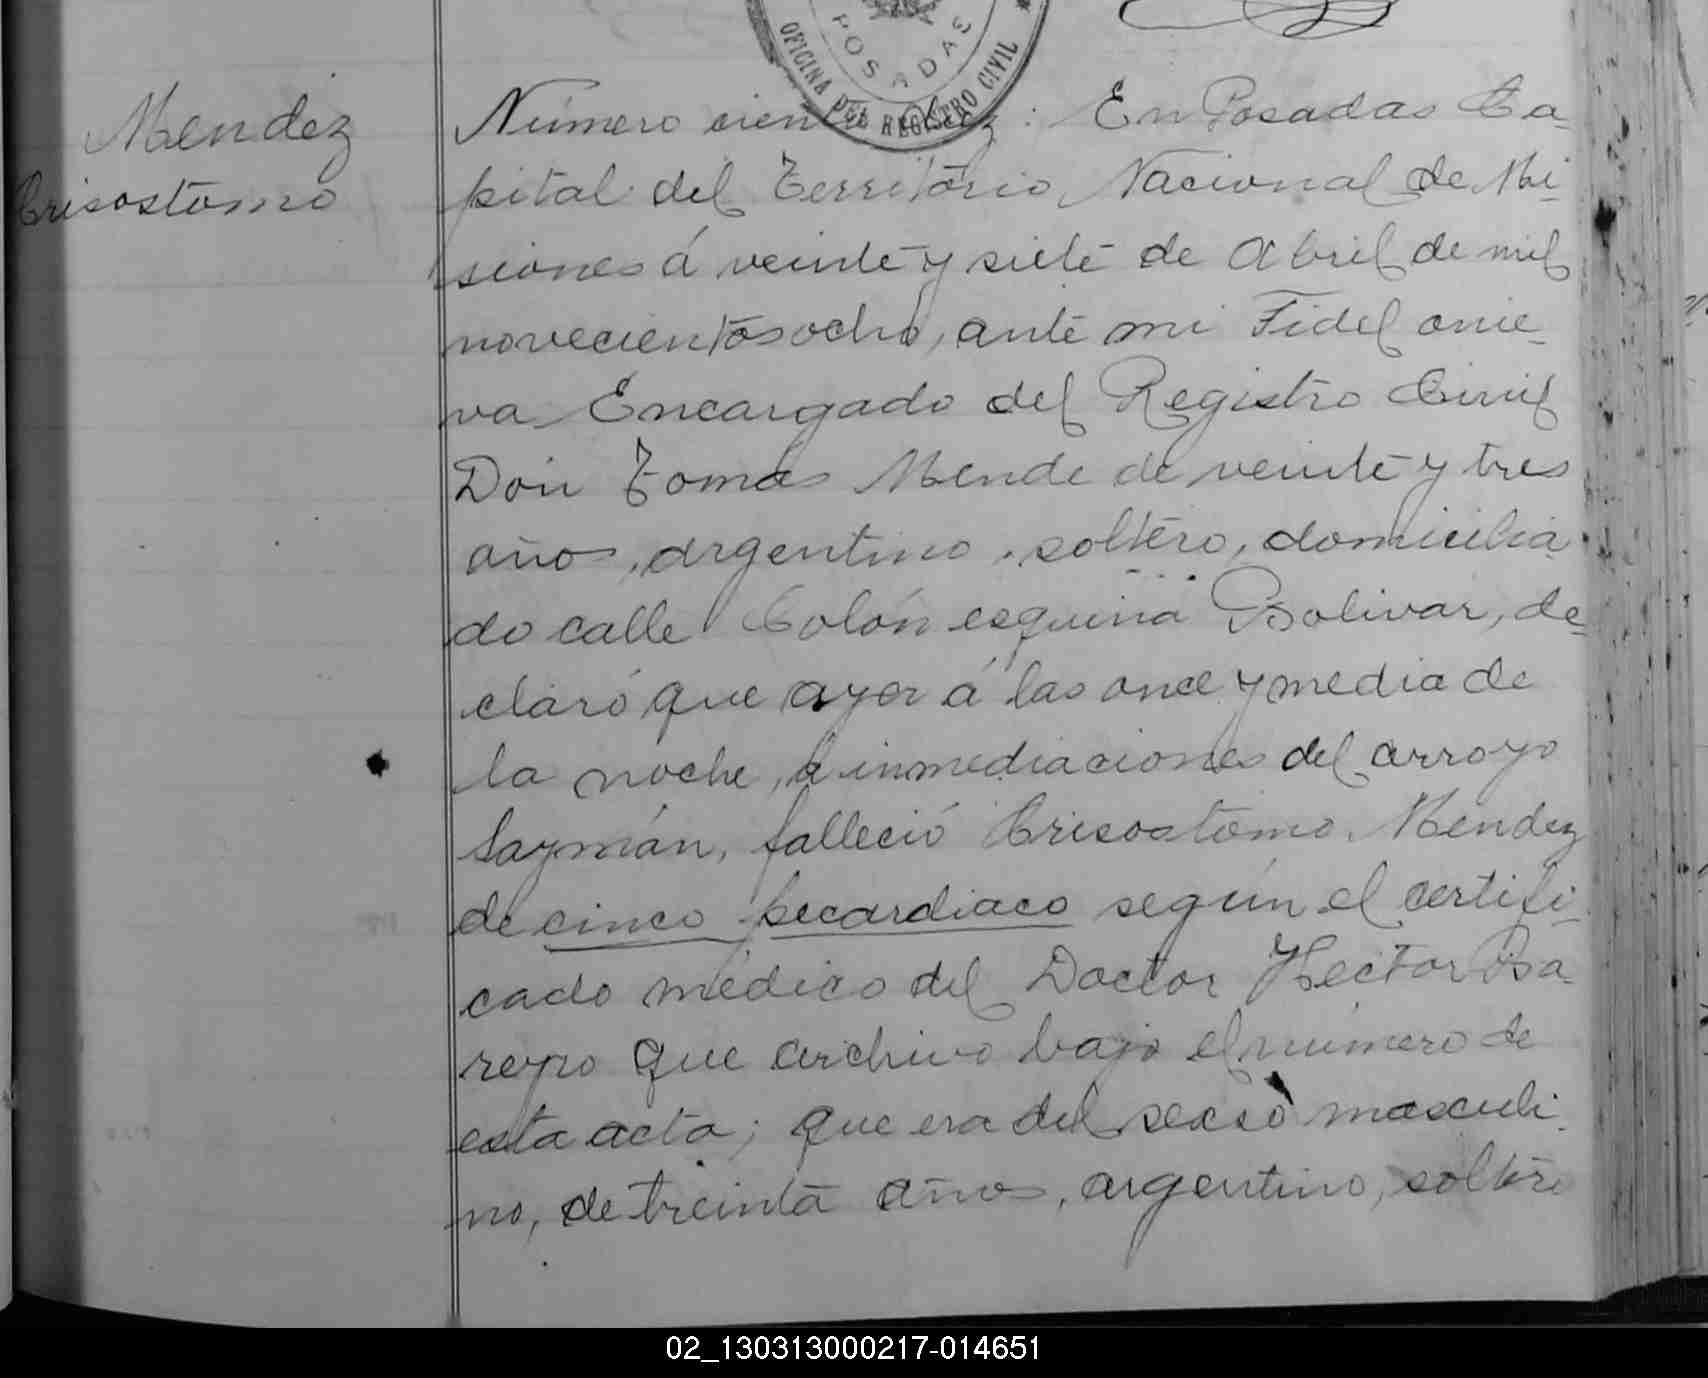 POSADAS
OFICINA DEL REGISTRO CIVIL
Mendez
Crisostomo
Número cien diez: En Posadas Ca-
pital del Territorio Nacional de Mi-
siones á veinte y siete de Abril de mil
novecientos ocho, ante mi Fidel onie-
va Encargado del Registro Civil
Don Tomás Mende de veinte y tres
años, argentino, soltero, domicilia
do calle Colón esquina Bolivar, de-
claró que ayer á las once y media de
la noche, á inmediaciones del arroyo
Saymán, falleció Crisostomo Mendez
de cinco pecardiaco según el certifi
cado médico del Doctor Hector Ba-
reyro que archivo bajo el número de
esta acta; que era del secso masculi-
no, de treinta años, argentino, soltero
02_130313000217-014651